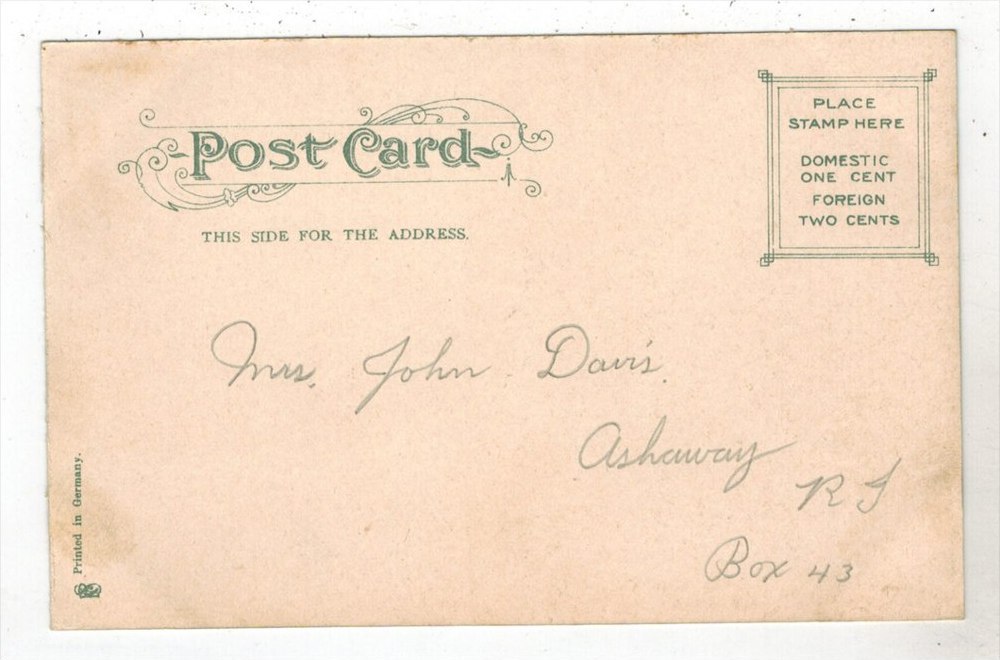 Post Card
THIS SIDE FOR THE ADDRESS.
PLACE
STAMP HERE
DOMESTIC
ONE CENT
FOREIGN
TWO CENTS
Mrs. John Davis.
Ashaway
R I
Box 43
Printed in Germany.